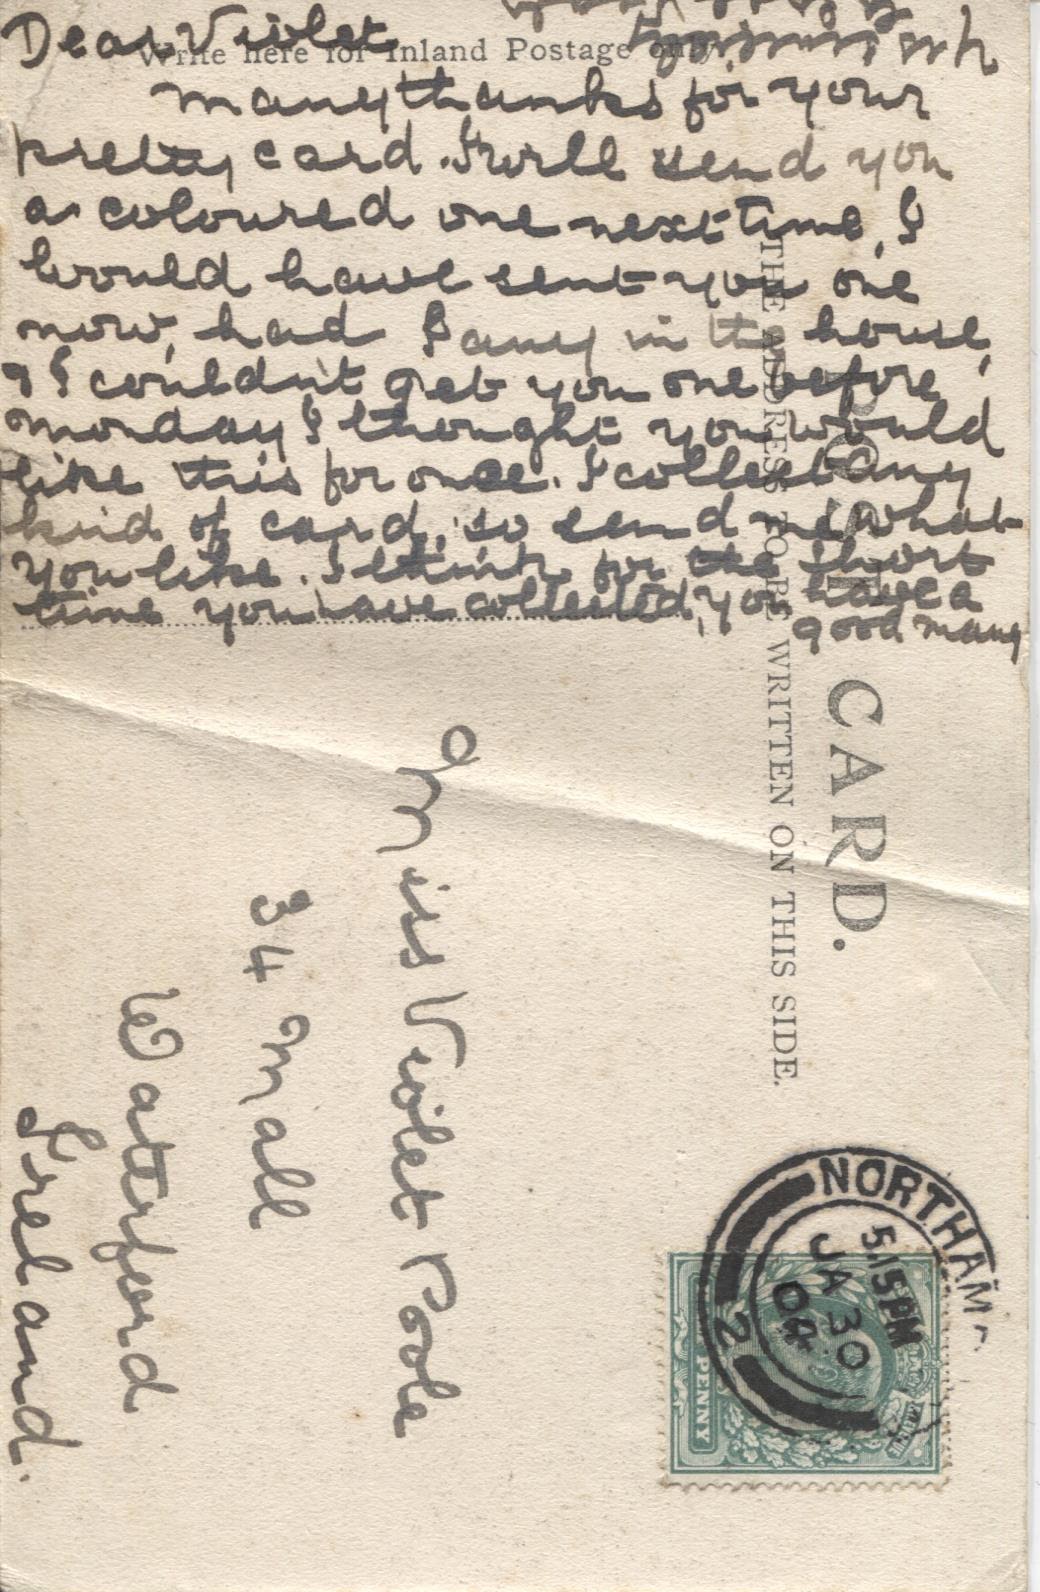 Dear Violet
Write here for Inland Postage only
many thanks for your
pretty card. I will send you
a coloured one next time, I
would have sent you one
now, had I any in the house,
& I couldn't get you one before
monday I thought you would
like this for once. I collect any
kind of card, so send me what
you like. I think for the short
time you have collected, you have a
good many
POST CARD.
THE ADDRESS TO BE WRITTEN ON THIS SIDE.
Miss Violet Poole
34 Mall
Waterford
Ireland.
NORTHAM
5.15PM
JA 30
04
2
PENNY